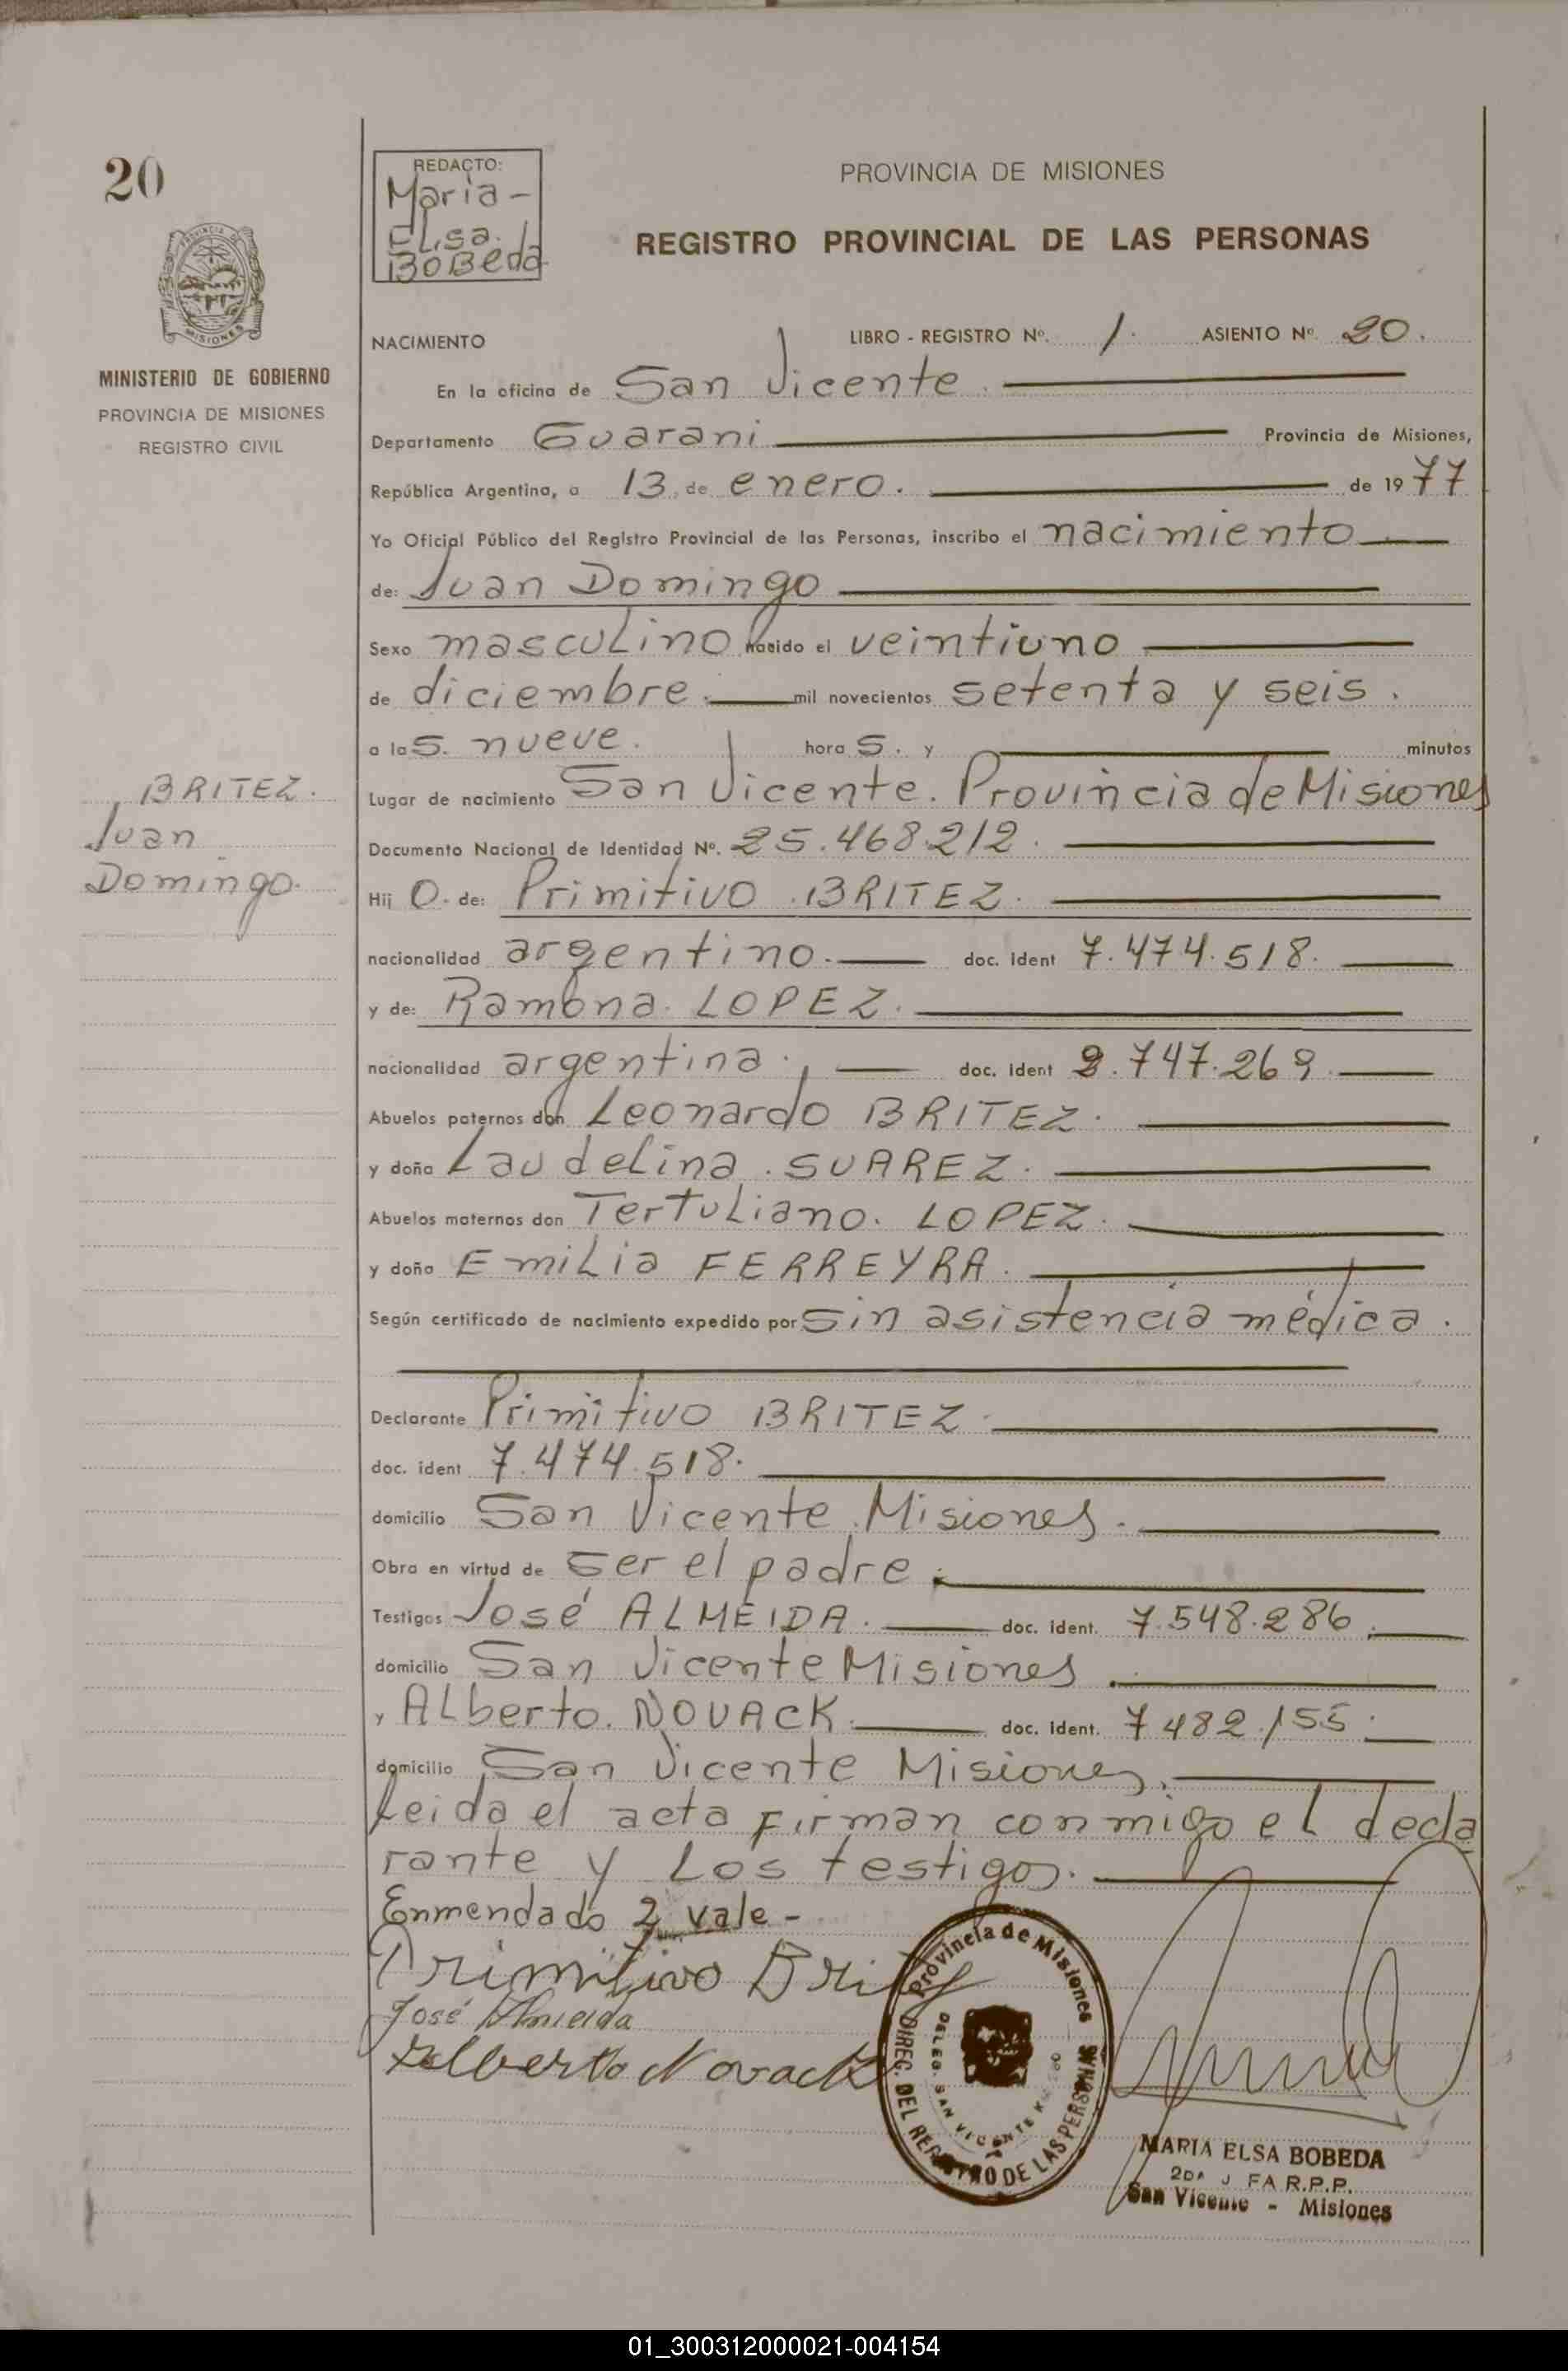 20
REDACTO:
Maria-
Elsa.
BOBeda
PROVINCIA DE MISIONES
REGISTRO PROVINCIAL DE LAS PERSONAS
PROVINCIA DE
MISIONES
MINISTERIO DE GOBIERNO
PROVINCIA DE MISIONES
REGISTRO CIVIL
NACIMIENTO LIBRO - REGISTRO Nº. 1. ASIENTO Nº. 20.
En la oficina de San Vicente.
Departamento Guarani Provincia de Misiones,
República Argentina, a 13, de enero. de 1977
Yo Oficial Público del Registro Provincial de las Personas, inscribo el nacimiento
de: Juan Domingo
Sexo masculino nacido el veintiuno
de diciembre. mil novecientos setenta y seis.
a las. nueve. horas. y minutos
Lugar de nacimiento San Vicente. Provincia de Misiones
BRITEZ.
Juan
Domingo.
Documento Nacional de Identidad Nº. 25.468.212.
Hijo. de: Primitivo BRITEZ.
nacionalidad argentino. doc. ident 7.474.518.
y de: Ramona. LOPEZ.
nacionalidad argentina. doc. ident 2.747.269.
Abuelos paternos don Leonardo BRITEZ.
y doña Laudelina. SUAREZ.
Abuelos maternos don Tertuliano. LOPEZ.
y doña Emilia FERREYRA.
Según certificado de nacimiento expedido por Sin asistencia médica.
Declarante Primitivo BRITEZ.
doc. ident 7.474.518.
domicilio San Vicente Misiones.
Obra en virtud de ser el padre.
Testigos José ALMEIDA. doc. ident. 7.548.286.
domicilio San Vicente Misiones.
y Alberto. NOVACK. doc. ident. 7482.155.
domicilio San Vicente Misiones.
Leida el acta firman conmigo el decla
rante y los testigos.
Enmendado 2 vale-
Primitivo Britez
José Almeida
Alberto Novack
Provincia de Misiones
DIREC. DEL REGISTRO DE LAS PERSONAS
DELEG. SAN VICENTE
MARIA ELSA BOBEDA
2DA J FA R.P.P.
San Vicente - Misiones
01_300312000021-004154